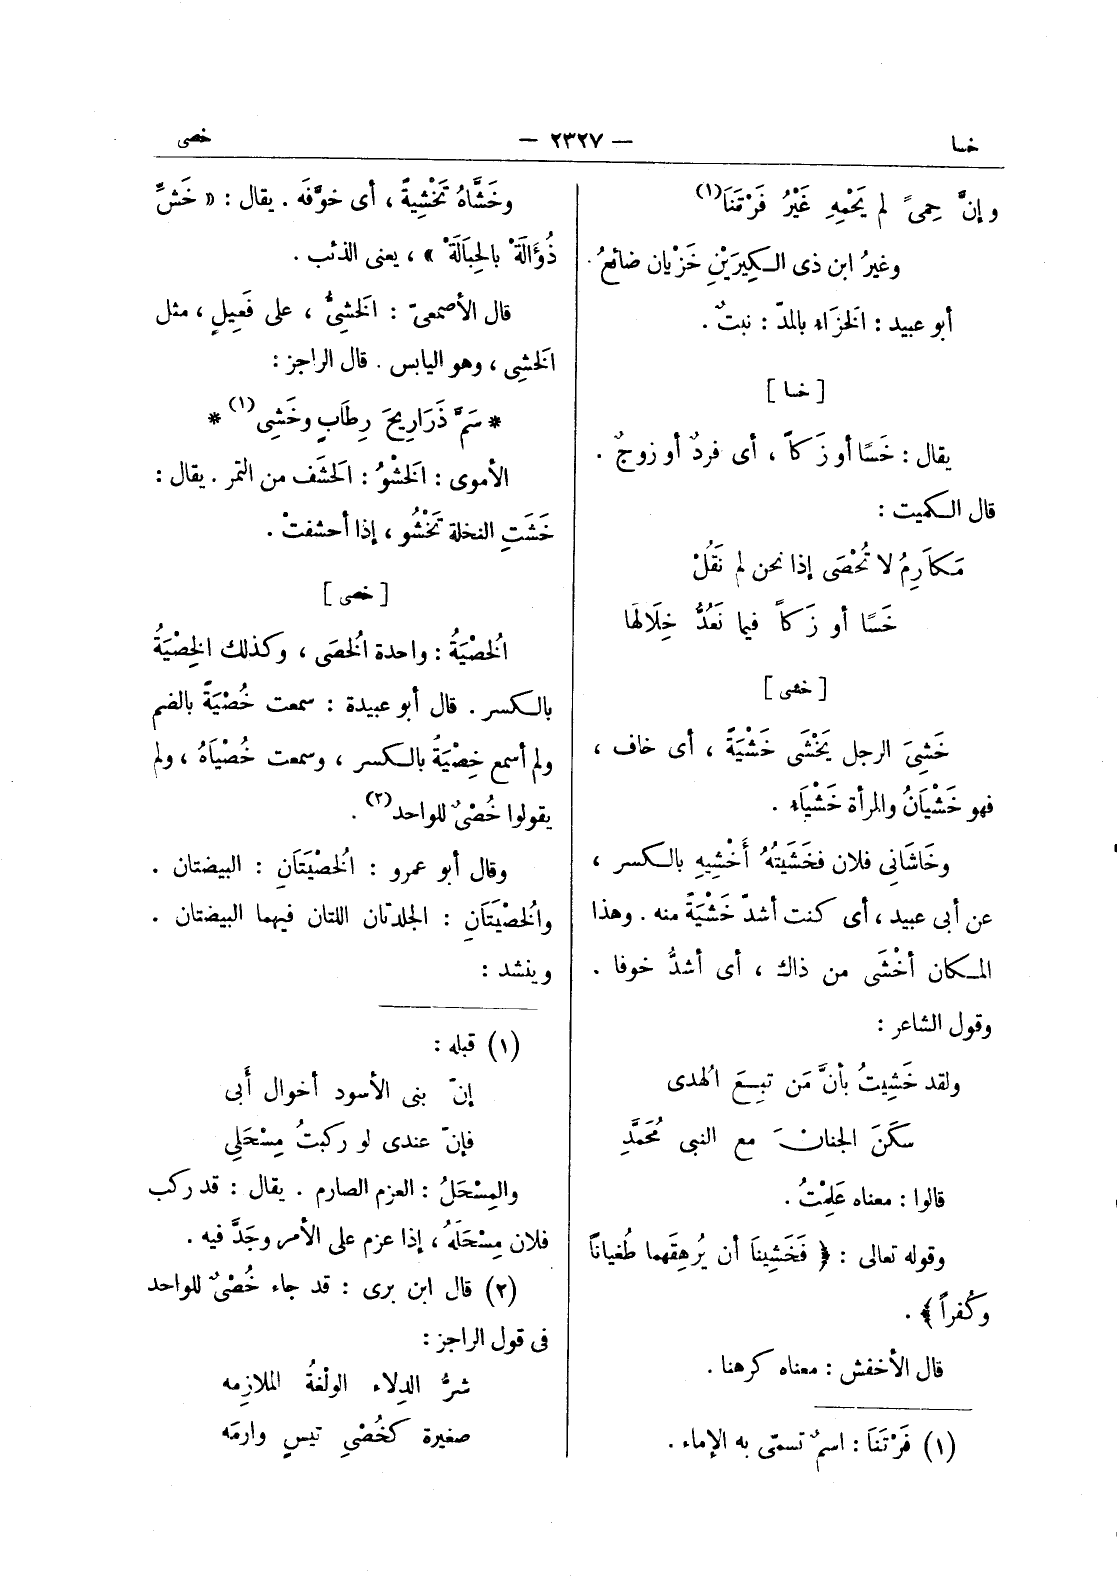 خسا
— ٢٣٢٧ —
خصى
وإنَّ حِمىً لم يَحْمِهِ غَيْرُ فَرْتَنَا(١)
وغيرُ ابن ذى الكِيرَيْنِ خَزْيان ضائعُ.
أبو عبيد : الخَزَاء بالمدّ : نبتٌ.
[ خسا ]
يقال : خَسًا أو زَكاً ، أى فردٌ أو زوجٌ .
قال الكميت :
مَكاَرِمُ لا تُحْصَى إذا نحن لم نَقُلْ
خَسًا أو زَكاً فيما نَعُدُّ خِلَالَهَا
[ خشى ]
خَشِىَ الرجل يَخْشَى خَشْيَةً ، أى خاف ،
فهو خَشْيَانُ والمرأة خَشْيَاء .
وخَاشَانِى فلان فخَشَيتُهُ أَخْشِيهِ بالكسر ،
عن أبى عبيد ، أى كنت أشدّ خَشْيَةً منه . وهذا
المكان أَخْشَى من ذاك ، أى أشدُّ خوفا .
وقول الشاعر :
ولقد خَشِيتُ بأنَّ مَن تبِعَ الهُدى
سكَنَ الجنانَ مع النبى مُحَمَّدِ
قالوا : معناه عَلِمْتُ .
وقوله تعالى : ﴿ فَخَشِيناَ أن يُرهِقَهما طُغياناً
وكُفراً ﴾ .
قال الأخفش : معناه كرهنا .
(١) فَرْتَنَا : اسمٌ تسمّى به الإماء .
وخَشَّاهُ تَخْشِيةً ، أى خوَّفَه . يقال : « خَشِّ
ذُؤَالَةَ بالحِبَالَةْ » ، يعنى الذئب .
قال الأصمعىّ : الخَشِىُّ ، على فَعِيلٍ ، مثل
الخَشِى ، وهو اليابس . قال الراجز :
* سَمَّ ذَرَارِيحَ رِطَابٍ وخَشِى(١) *
الأموى : الخَشْوُ : الحَشَف من التمر . يقال :
خَشَتِ النخلة تَخْشُو ، إذا أحشفتْ .
[ خصى ]
الخُصْيَةُ : واحدة الخُصَى ، وكذلك الخِصْيَةُ
بالكسر . قال أبو عبيدة : سمعت خُصْيَةً بالضم
ولم أسمع خِصْيَةً بالكسر ، وسمعت خُصْيَاهُ ، ولم
يقولوا خُصْىٌ للواحد(٢) .
وقال أبو عمرو : الخُصْيَتَانِ : البيضتان .
والخُصْيَتَانِ : الجلدتان اللتان فيهما البيضتان .
وينشد :
(١) قبله :
إنّ بنى الأسود أخوال أَبى
فإنّ عندى لو ركبتُ مِسْحَلِى
والمِسْحَلُ : العزم الصارم . يقال : قد ركب
فلان مِسْحَلَهُ ، إذا عزم على الأمر وجَدَّ فيه .
(٢) قال ابن برى : قد جاء خُصْىٌ للواحد
فى قول الراجز :
شرُّ الدِلاء الولْغةُ الملازِمه
صغيرة كخُصْىِ تيسٍ وارمَه